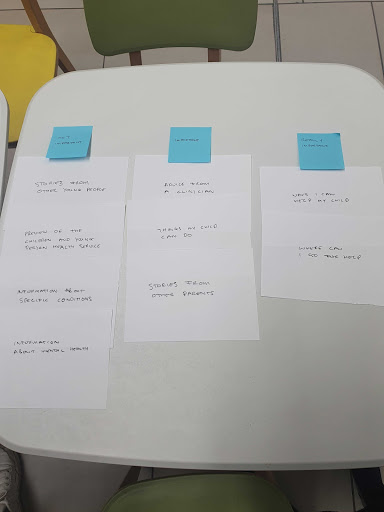 NOT
IMPORTANT
STORIES FROM
OTHER YOUNG PEOPLE
PREVIEW OF THE
CHILDREN AND YOUNG
PERSON HEALTH SERVICE
INFORMATION ABOUT
SPECIFIC CONDITIONS
INFORMATION
ABOUT MENTAL HEALTH
IMPORTANT
ADVICE FROM
A CLINICIAN
THINGS MY CHILD
CAN DO
STORIES FROM
OTHER PARENTS
IMPORTANT
WAYS I CAN
HELP MY CHILD
WHERE CAN
I GO FOR HELP